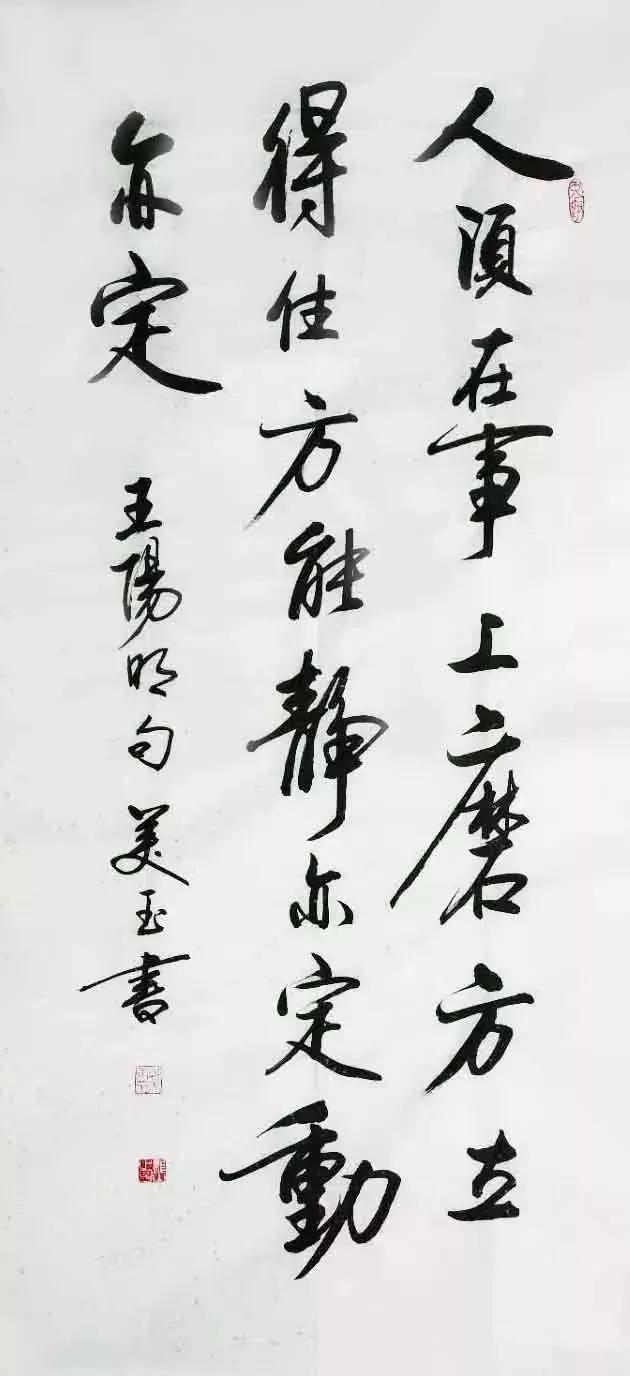 人須在事上磨方立
得住方能静亦定動
亦定
王陽明句 美玉書